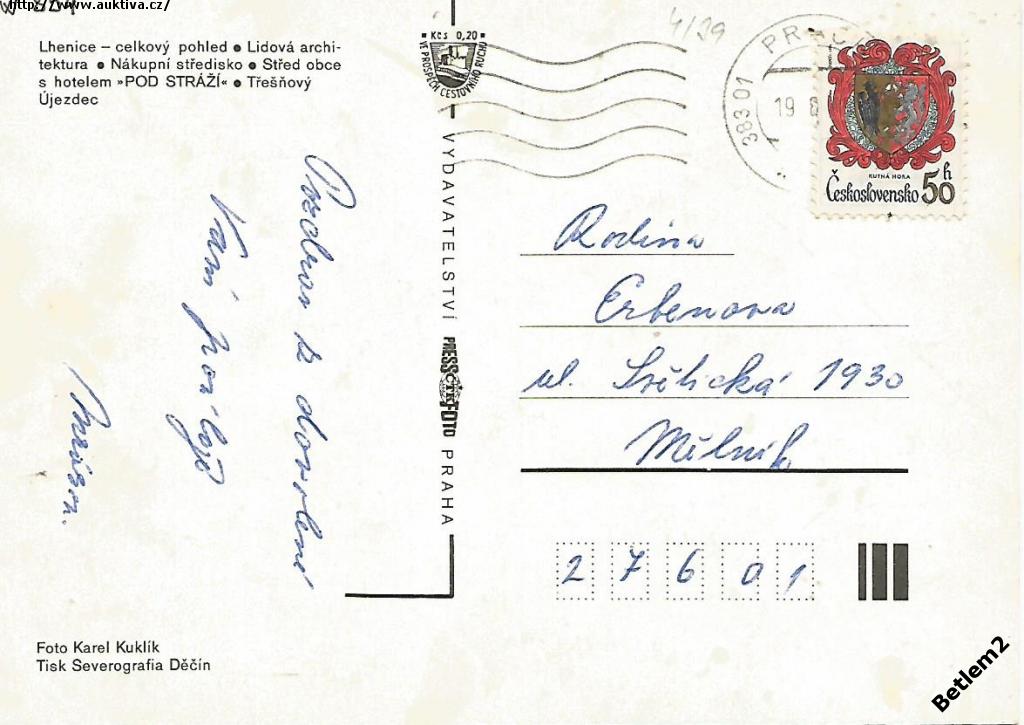 http://www.auktiva.cz/
Lhenice – celkový pohled ● Lidová archi-
tektura ● Nákupní středisko ● Střed obce
s hotelem »POD STRÁŽÍ« ● Třešňový
Újezdec
Kčs 0,20
VE PROSPĚCH CESTOVNÍHO RUCHU
4/29
383 01
19
KUTNÁ HORA
Československo 50 h
Pozdrav z dovolené
Vám
VYDAVATELSTVÍ PRESSFOTO PRAHA
ČTK
Rodina
Erbenova
ul. 1930
Mělník
27601
Foto Karel Kuklík
Tisk Severografia Děčín
Betlem2